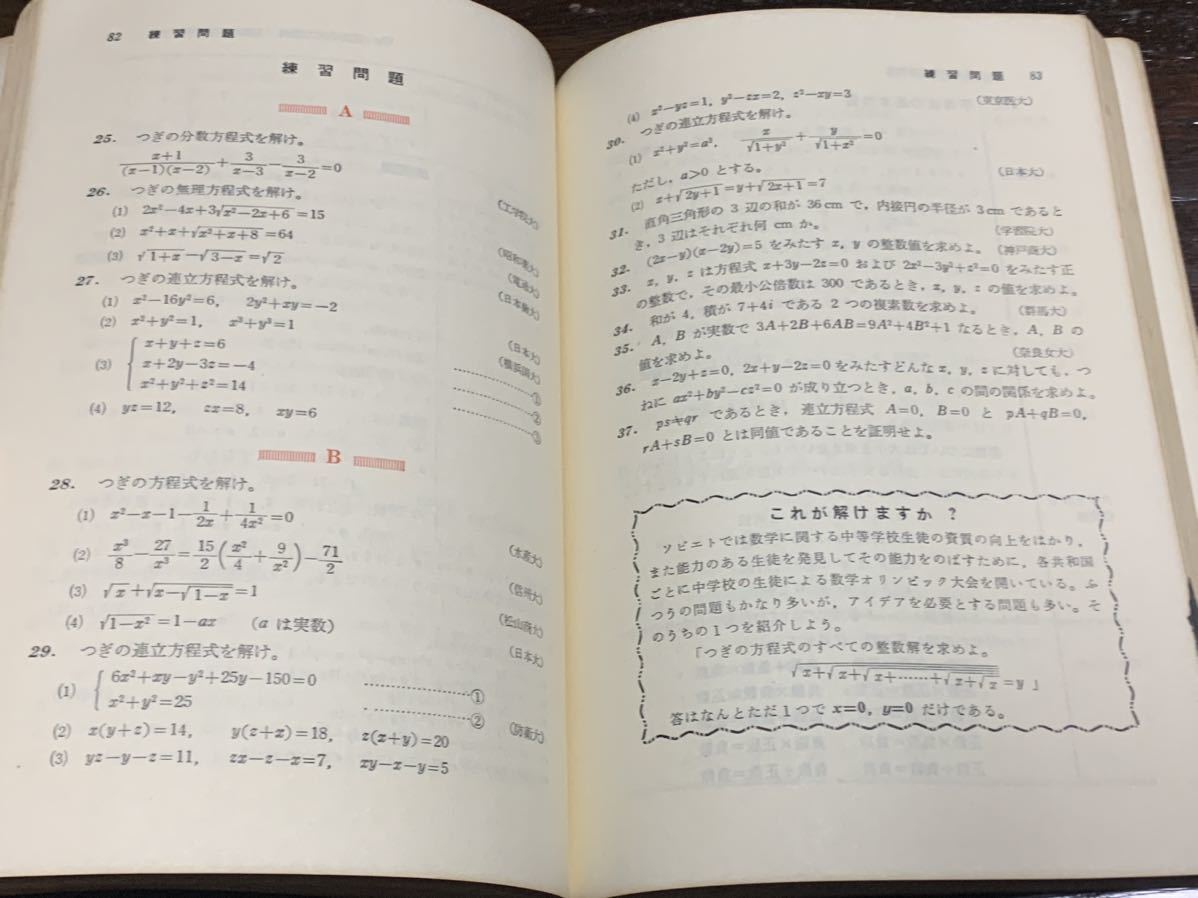 82 練習問題
練習問題
A
25. つぎの分数方程式を解け。
(x+1)/((x−1)(x−2)) + 3/(x−3) − 3/(x−2) = 0
(工学院大)
26. つぎの無理方程式を解け。
(1) 2x²−4x+3√(x²−2x+6)=15
(2) x²+x+√(x³+x+8)=64
(昭和薬大)
(3) √(1+x)−√(3−x)=√2
(電通大)
27. つぎの連立方程式を解け。
(日本歯大)
(1) x²−16y²=6, 2y²+xy=−2
(2) x²+y²=1, x³+y³=1
(日本大)
(3) { x+y+z=6 ……①
x+2y−3z=−4 ……②
x²+y²+z²=14 ……③
(横浜国大)
(4) yz=12, zx=8, xy=6
B
28. つぎの方程式を解け。
(1) x²−x−1−1/(2x)+1/(4x²)=0
(2) x³/8−27/x³=15/2(x²/4+9/x²)−71/2
(水産大)
(3) √x+√(x−√(1−x))=1
(信州大)
(4) √(1−x²)=1−ax (a は実数)
(松山商大)
29. つぎの連立方程式を解け。
(日本大)
(1) { 6x²+xy−y²+25y−150=0 ……①
x²+y²=25 ……②
(2) x(y+z)=14, y(z+x)=18, z(x+y)=20
(防衛大)
(3) yz−y−z=11, zx−z−x=7, xy−x−y=5
練習問題 83
(4) x²−yz=1, y²−zx=2, z²−xy=3
(東京医大)
30. つぎの連立方程式を解け。
(1) x²+y²=a², x/√(1+y²)+y/√(1+x²)=0
ただし, a>0 とする。
(日本大)
(2) x+√(2y+1)=y+√(2x+1)=7
31. 直角三角形の 3 辺の和が 36cm で, 内接円の半径が 3cm であると
き, 3 辺はそれぞれ何 cm か。
(学習院大)
32. (2x−y)(x−2y)=5 をみたす x, y の整数値を求めよ。 (神戸商大)
33. x, y, z は方程式 x+3y−2z=0 および 2x²−3y²+z²=0 をみたす正
の整数で, その最小公倍数は 300 であるとき, x, y, z の値を求めよ。
34. 和が 4, 積が 7+4i である 2 つの複素数を求めよ。 (群馬大)
35. A, B が実数で 3A+2B+6AB=9A²+4B²+1 なるとき, A, B の
値を求めよ。
(奈良女大)
36. x−2y+z=0, 2x+y−2z=0 をみたすどんな x, y, z に対しても, つ
ねに ax²+by²−cz²=0 が成り立つとき, a, b, c の間の関係を求めよ。
37. ps≠qr であるとき, 連立方程式 A=0, B=0 と pA+qB=0,
rA+sB=0 とは同値であることを証明せよ。
これが解けますか?
ソビエトでは数学に関する中等学校生徒の資質の向上をはかり,
また能力のある生徒を発見してその能力をのばすために, 各共和国
ごとに中学校の生徒による数学オリンピック大会を開いている。ふ
つうの問題もかなり多いが, アイデアを必要とする問題も多い。そ
のうちの1つを紹介しよう。
「つぎの方程式のすべての整数解を求めよ。
√(x+√(x+√(x+……+√(x+√x))))=y 」
答はなんとただ1つで x=0, y=0 だけである。